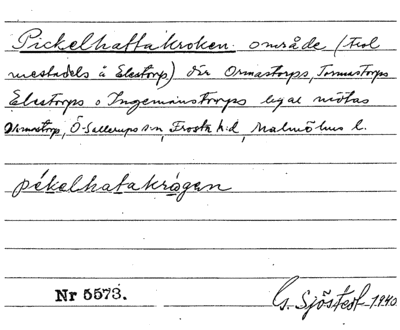 Pickelhattakroken område (trol
mestadels å Elestorp) där Ormastorps, Tormastorps
Elestorps o Ingemanstorps egor mötas
Ormastorp, Ö-Sallerups sn, Frosta h:d, Malmöhus l.
pékelhatakrågen
Nr 5573.
G. Sjöstedt 1940